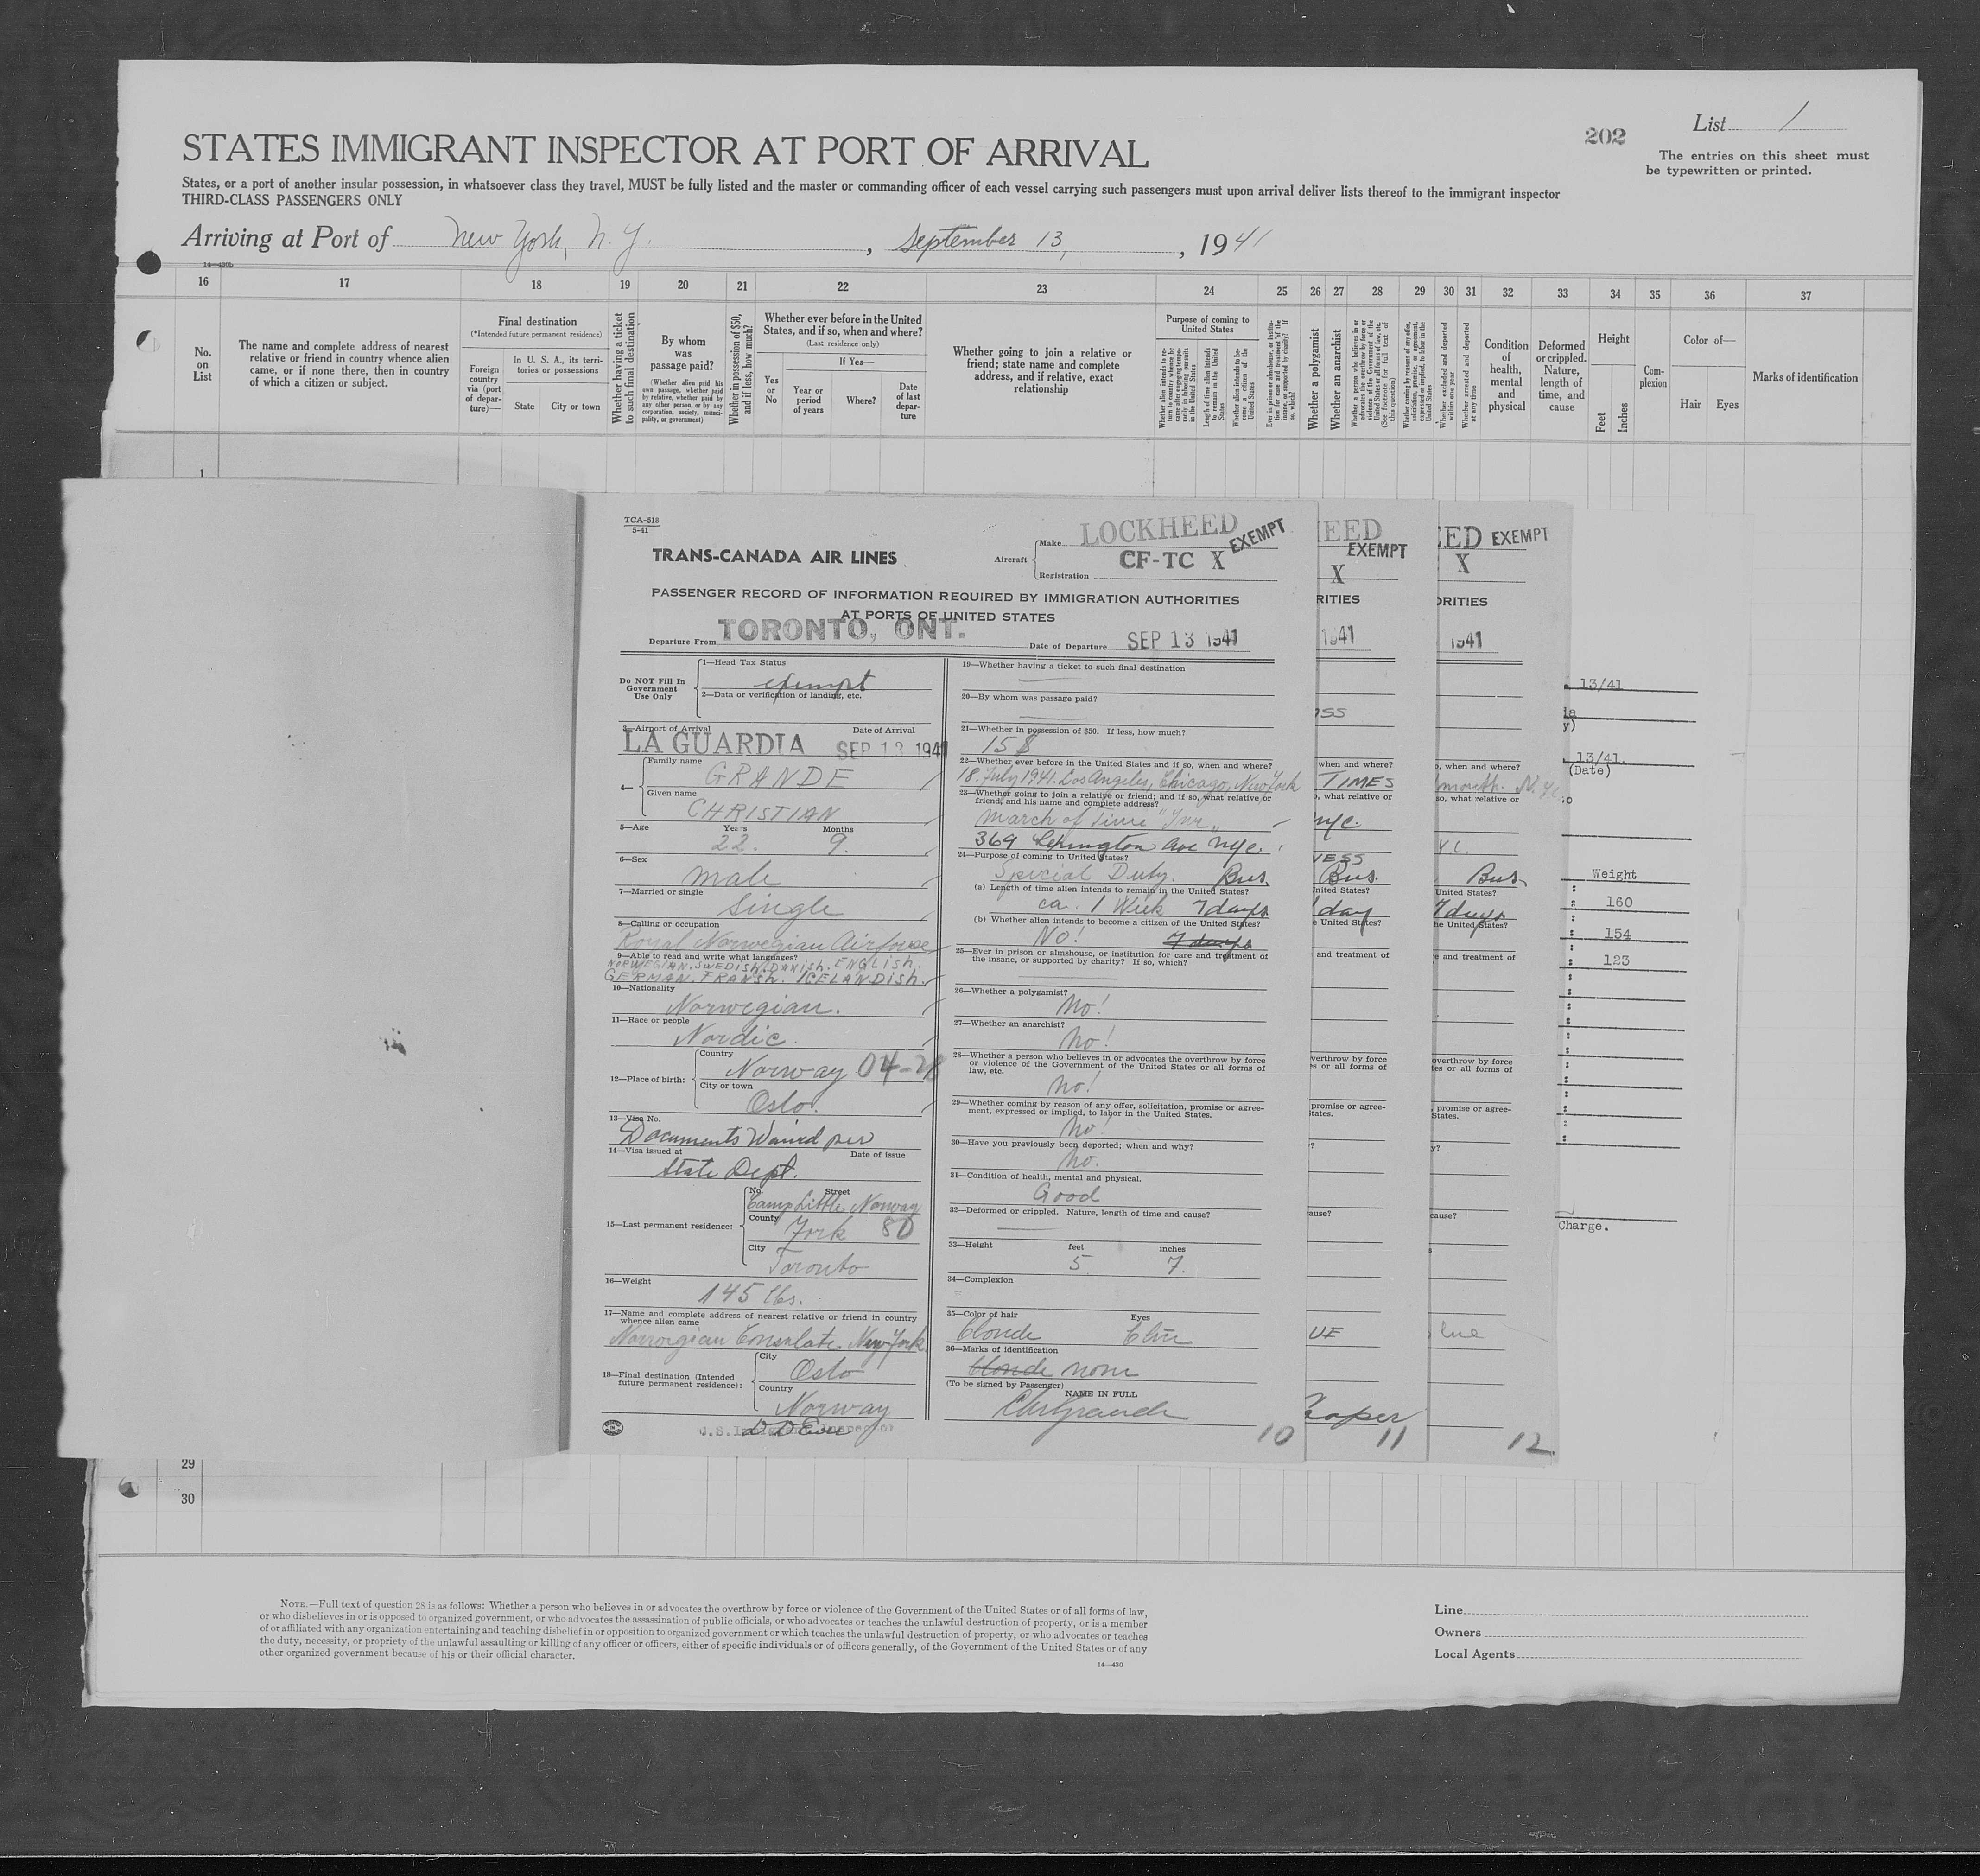 202
List 1
The entries on this sheet must
be typewritten or printed.
STATES IMMIGRANT INSPECTOR AT PORT OF ARRIVAL
States, or a port of another insular possession, in whatsoever class they travel, MUST be fully listed and the master or commanding officer of each vessel carrying such passengers must upon arrival deliver lists thereof to the immigrant inspector
THIRD-CLASS PASSENGERS ONLY
Arriving at Port of New York, N. Y., September 13, 1941
14—430b
16 17 18 19 20 21 22 23 24 25 26 27 28 29 30 31 32 33 34 35 36 37
No.
on
List
The name and complete address of nearest
relative or friend in country whence alien
came, or if none there, then in country
of which a citizen or subject.
Final destination
(*Intended future permanent residence)
Foreign
country
via (port
of depar-
ture)—
In U. S. A., its terri-
tories or possessions
State City or town
Whether having a ticket
to such final destination
By whom
was
passage paid?
(Whether alien paid his
own passage, whether paid
by relative, whether paid by
any other person, or by any
corporation, society, munici-
pality, or government)
Whether in possession of $50,
and if less, how much?
Whether ever before in the United
States, and if so, when and where?
(Last residence only)
If Yes—
Yes
or
No
Year or
period
of years
Where?
Date
of last
depar-
ture
Whether going to join a relative or
friend; state name and complete
address, and if relative, exact
relationship
Purpose of coming to
United States
Whether alien intends to re-
turn to country whence he
came after engaging tempo-
rarily in laboring pursuits
in the United States
Length of time alien intends
to remain in the United
States
Whether alien intends to be-
come a citizen of the
United States
Ever in prison or almshouse, or institu-
tion for care and treatment of the
insane, or supported by charity? If
so, which?
Whether a polygamist
Whether an anarchist
Whether a person who believes in or
advocates the overthrow by force or
violence of the Government of the
United States or all forms of law, etc.
(See footnote for full text of
this question)
Whether coming by reason of any offer,
solicitation, promise, or agreement,
expressed or implied, to labor in the
United States
Whether excluded and deported
within one year
Whether arrested and deported
at any time
Condition
of
health,
mental
and
physical
Deformed
or crippled.
Nature,
length of
time, and
cause
Height
Feet
Inches
Com-
plexion
Color of—
Hair Eyes
Marks of identification
1
TCA-518
5-41
TRANS-CANADA AIR LINES
Aircraft
Make LOCKHEED EXEMPT
CF-TC X
Registration
PASSENGER RECORD OF INFORMATION REQUIRED BY IMMIGRATION AUTHORITIES
AT PORTS OF UNITED STATES
Departure From TORONTO, ONT. Date of Departure SEP 13 1941
Do NOT Fill In
Government
Use Only
1—Head Tax Status
exempt
2—Data or verification of landing, etc.
3—Airport of Arrival Date of Arrival
LA GUARDIA SEP 13 1941
4—
Family name
GRANDE
Given name
CHRISTIAN
5—Age Years Months
22. 9.
6—Sex
male
7—Married or single
Single
8—Calling or occupation
Royal Norwegian Airforce
9—Able to read and write what languages?
NORWEGIAN. SWEDISH. DANISH. ENGLISH.
GERMAN. FRANSH. ICELANDISH.
10—Nationality
Norwegian.
11—Race or people
Nordic.
12—Place of birth:
Country
Norway 04-28
City or town
Oslo.
13—Visa No.
Documents Waived per
14—Visa issued at Date of issue
State Dept.
15—Last permanent residence:
No. Street
Camp Little Norway
County
York 80
City
Toronto
16—Weight
145 lbs.
17—Name and complete address of nearest relative or friend in country
whence alien came
Norwegian Consulate, New York
18—Final destination (Intended
future permanent residence):
City
Oslo
Country
Norway
19—Whether having a ticket to such final destination
20—By whom was passage paid?
21—Whether in possession of $50. If less, how much?
15 $
22—Whether ever before in the United States and if so, when and where?
18. July 1941. Los Angeles, Chicago, New York
23—Whether going to join a relative or friend; and if so, what relative or
friend, and his name and complete address?
March of Time "Inc„
369 Lexington Ave NYC.
24—Purpose of coming to United States?
Special Duty. Bus.
(a) Length of time alien intends to remain in the United States?
ca. 1 Week 7 days
(b) Whether alien intends to become a citizen of the United States?
No! 7 days
25—Ever in prison or almshouse, or institution for care and treatment of
the insane, or supported by charity? If so, which?
26—Whether a polygamist?
No!
27—Whether an anarchist?
No!
28—Whether a person who believes in or advocates the overthrow by force
or violence of the Government of the United States or all forms of
law, etc.
No!
29—Whether coming by reason of any offer, solicitation, promise or agree-
ment, expressed or implied, to labor in the United States.
No!
30—Have you previously been deported; when and why?
No.
31—Condition of health, mental and physical.
Good
32—Deformed or crippled. Nature, length of time and cause?
33—Height feet inches
5 7.
34—Complexion
35—Color of hair Eyes
blonde blue
36—Marks of identification
blonde none
(To be signed by Passenger) NAME IN FULL
Chr Grande
10
EED
EXEMPT
X
RITIES
1941
ESS
when and where?
TIMES
, what relative or
nyc.
NESS
Bus.
United States?
1 day
e United States?
and treatment of
verthrow by force
es or all forms of
promise or agree-
tates.
?
ause?
UE
Cooper
11
ED EXEMPT
X
ORITIES
1941
, when and where?
so, what relative or
Bus.
United States?
7 days
he United States?
e and treatment of
overthrow by force
tes or all forms of
, promise or agree-
States.
y?
cause?
lue
12
13/41
13/41.
(Date)
Weight
160
154
123
Charge.
29
30
NOTE.—Full text of question 28 is as follows: Whether a person who believes in or advocates the overthrow by force or violence of the Government of the United States or of all forms of law,
or who disbelieves in or is opposed to organized government, or who advocates the assassination of public officials, or who advocates or teaches the unlawful destruction of property, or is a member
of or affiliated with any organization entertaining and teaching disbelief in or opposition to organized government or which teaches the unlawful destruction of property, or who advocates or teaches
the duty, necessity, or propriety of the unlawful assaulting or killing of any officer or officers, either of specific individuals or of officers generally, of the Government of the United States or of any
other organized government because of his or their official character.
14—430
Line
Owners
Local Agents